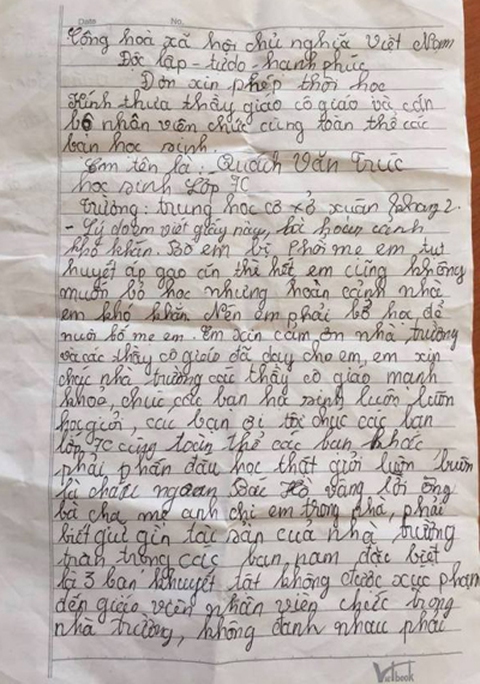 Date No.
Công hoà xã hội chủ nghĩa Việt Nam
Độc lập - tự do - hạnh phúc
Đơn xin phép thôi học
Kính thưa thầy giáo cô giáo và cán
bộ nhân viên chức cùng toàn thể các
bạn học sinh.
Em tên là: Quách Văn Trúc
học sinh lớp 7C
Trường: trung học cơ xở xuân phong 2.
- Lý do em viết giấy này, là hoàn cảnh
khó khăn. Bố em bị phổi mẹ em tụt
huyết áp gạo ăn thì hết em cũng không
muốn bỏ học nhưng hoàn cảnh nhà
em khó khăn nên em phải bỏ học để
nuôi bố mẹ em. Em xin cảm ơn nhà trường
và các thầy cô giáo đã dạy cho em, em xin
chúc nhà trường các thầy cô giáo mạnh
khoẻ, chúc các bạn học sinh luôn luôn
học giỏi, các bạn ơi tôi chúc các bạn
lớp 7C cùng toàn thể các bạn khác
phải phấn đấu học thật giỏi luôn luôn
là cháu ngoan Bác Hồ vâng lời ông
bà cha mẹ anh chị em trong nhà, phải
biết giữ gìn tài sản của nhà trường
trân trọng các bạn nam đặc biệt
là 3 bạn khuyết tật không được xúc phạm
đến giáo viên nhân viên chức trong
nhà trường, không đánh nhau phải
Vietbook